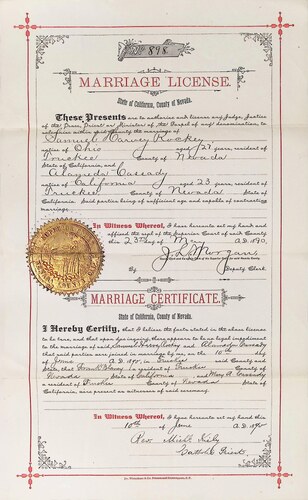 No. 898.
MARRIAGE LICENSE.
State of California, County of Nevada.
These Presents are to authorize and license any Judge, Justice
of the Peace, Priest or Minister of the Gospel of any denomination, to
solemnize within said County the marriage of
Samuel Harvey
native of Ohio aged 27 years, resident of
Truckee County of Nevada
State of California, and
Cassady
native of California aged 23 years, resident of
Truckee County of Nevada
State of California. Said parties being of sufficient age and capable of contracting
marriage.
In Witness Whereof, I have hereunto set my hand and
affixed the seal of the Superior Court of said County
this 23rd day of May A.D. 1890,
J. L. Morgan
By Deputy Clerk.
MARRIAGE CERTIFICATE.
State of California, County of Nevada.
I Hereby Certify, that I believe the facts stated in the above license
to be true, and that upon due inquiry, there appears to be no legal impediment
to the marriage of said Samuel Harvey and Cassady
that said parties were joined in marriage by me, on the 10th day
of June A.D. 1890, in Truckee said County and
State; that Frank a resident of Truckee County of
Nevada State of California and Mary Cassady
a resident of Truckee County of Nevada State of
California, were present as witnesses of said ceremony.
In Witness Whereof, I have hereunto set my hand this
10th of June A.D. 1890
Rev.
Catholic Priest